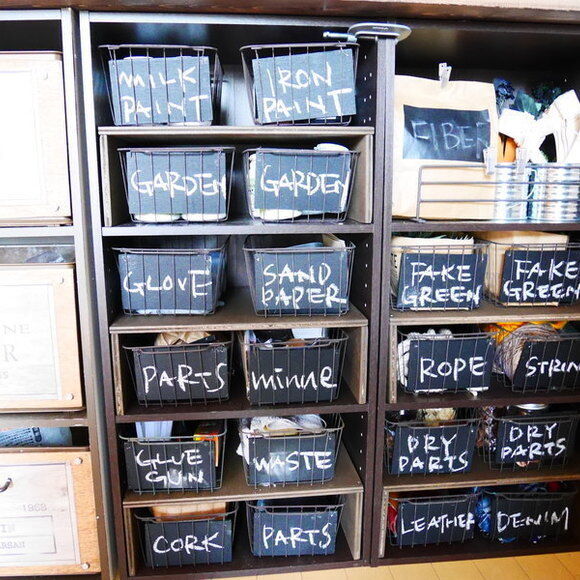 MILK
PAINT
IRON
PAINT
GARDEN
GARDEN
GLOVE
SAND
PAPER
PARTS
minne
GLUE
GUN
WASTE
CORK
PARTS
FIBER
FAKE
GREEN
FAKE
GREEN
ROPE
STRIN
DRY
PARTS
DRY
PARTS
LEATHER
DENIM
NE
R
S
1968
IN
ARSAN